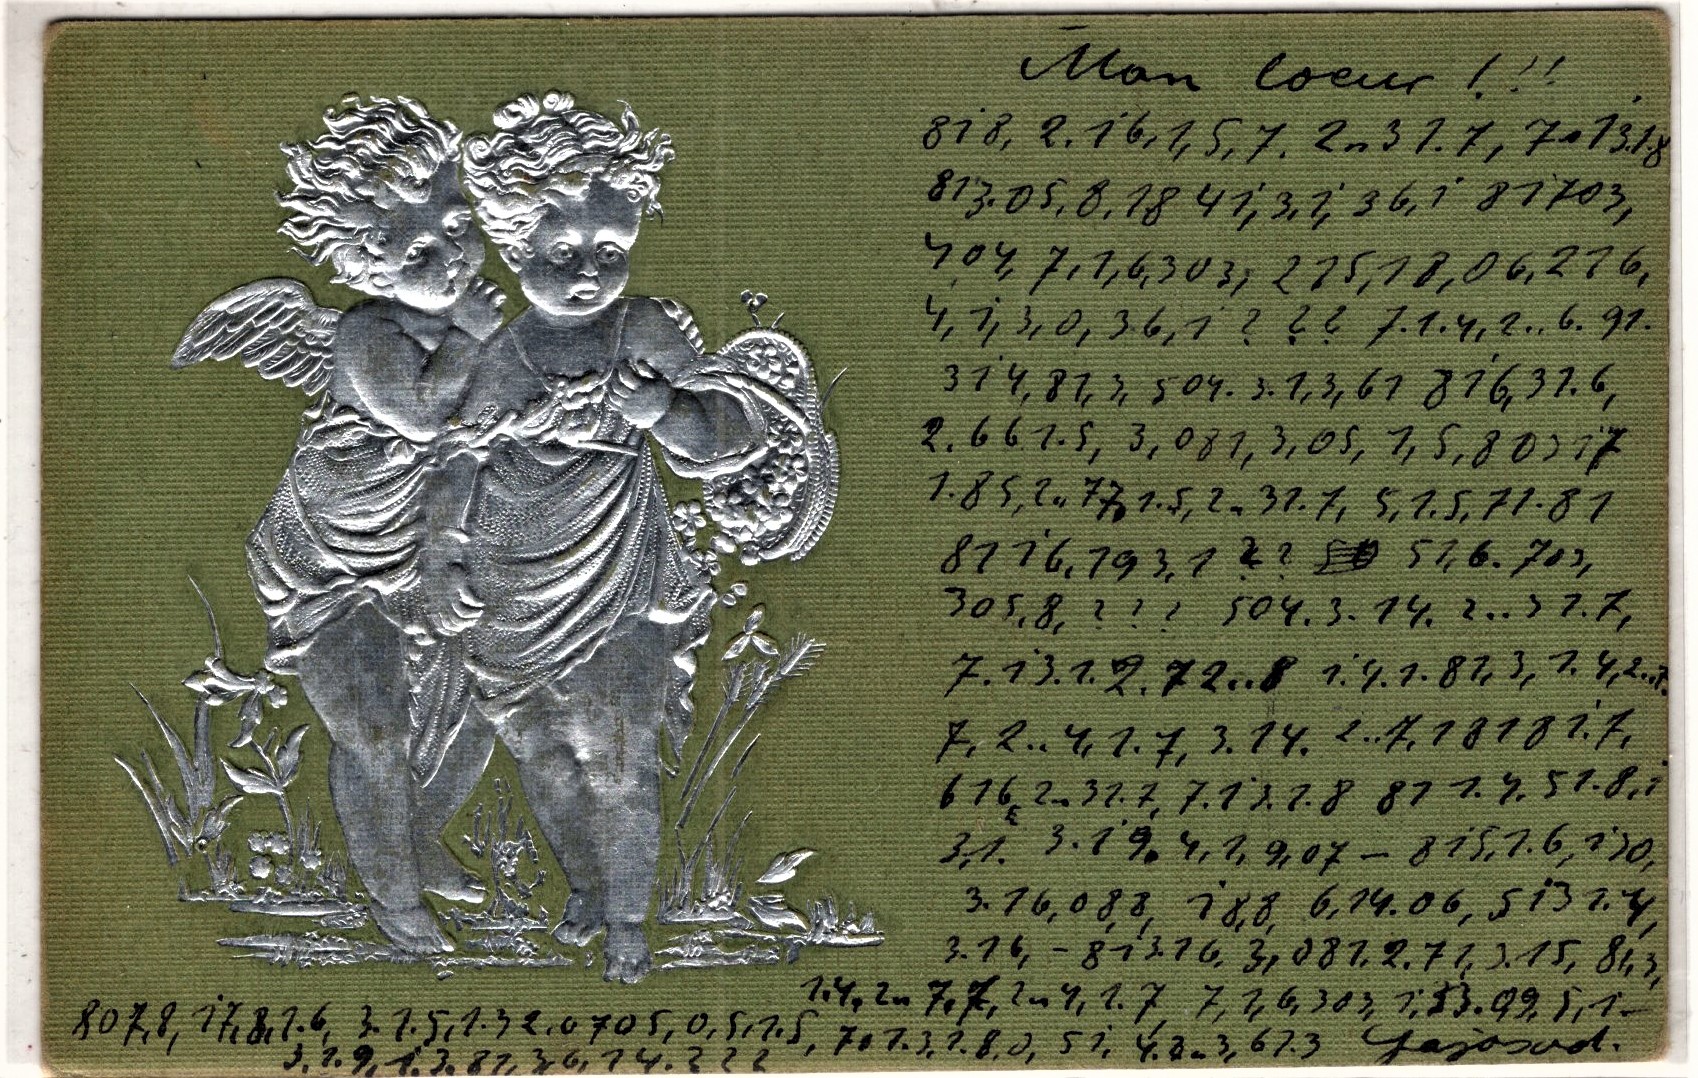 Mon coeur !!!
818, 2. 16, 1, 5, 7. 2.. 31. 7, 7.13.1.8
813.05, 8, 18 41, 3, 1, 36, 1 81703,
404, 7, 1, 6, 303, 215, 18, 06, 216,
4, 1, 3, 0, 36, 1 ? ? ? 7.1.4, 2.. 6. 91.
314, 81, 3, 504. 3.1, 3, 61 816, 31.6,
2.661.5, 3, 081, 3, 05, 1, 5, 80317
1.85, 2.. 77, 1.5, 2.. 31.7, 5, 1.5, 71.81
8116, 193, 1 ? ? 51, 6. 703,
305, 8, ? ! ? 504. 3. 14. 2.. 31.7,
7. 13. 1. 2. 72..8 1.4.1.81, 3, 1.4, 2..7.
7, 2.. 4, 1.7, 3.14. 2..7, 18181.7,
616, 2.. 31.7, 7.13.1.8 81 1.4. 51.8, 1
3, 1. 3.19. 4, 1, 9, 07 — 815, 1.6, 130,
3.16, 088, 188, 6, 14.06, 5131.4,
3.16, - 813.16, 3, 081.2.71, 3.15, 81, 3,
1.4, 2.. 7, 7, 2.. 4, 1.7 7, 1, 6, 303, 1, 33.09, 5, 1—
807, 8, 17, 8, 1.6, 3.1.5, 1.32.0705, 0, 5, 1.5, 701.3, 1.8, 0, 51, 4.2..3, 61.3
3.1.9, 1.3.81, 3, 6, 14. ? ? ?